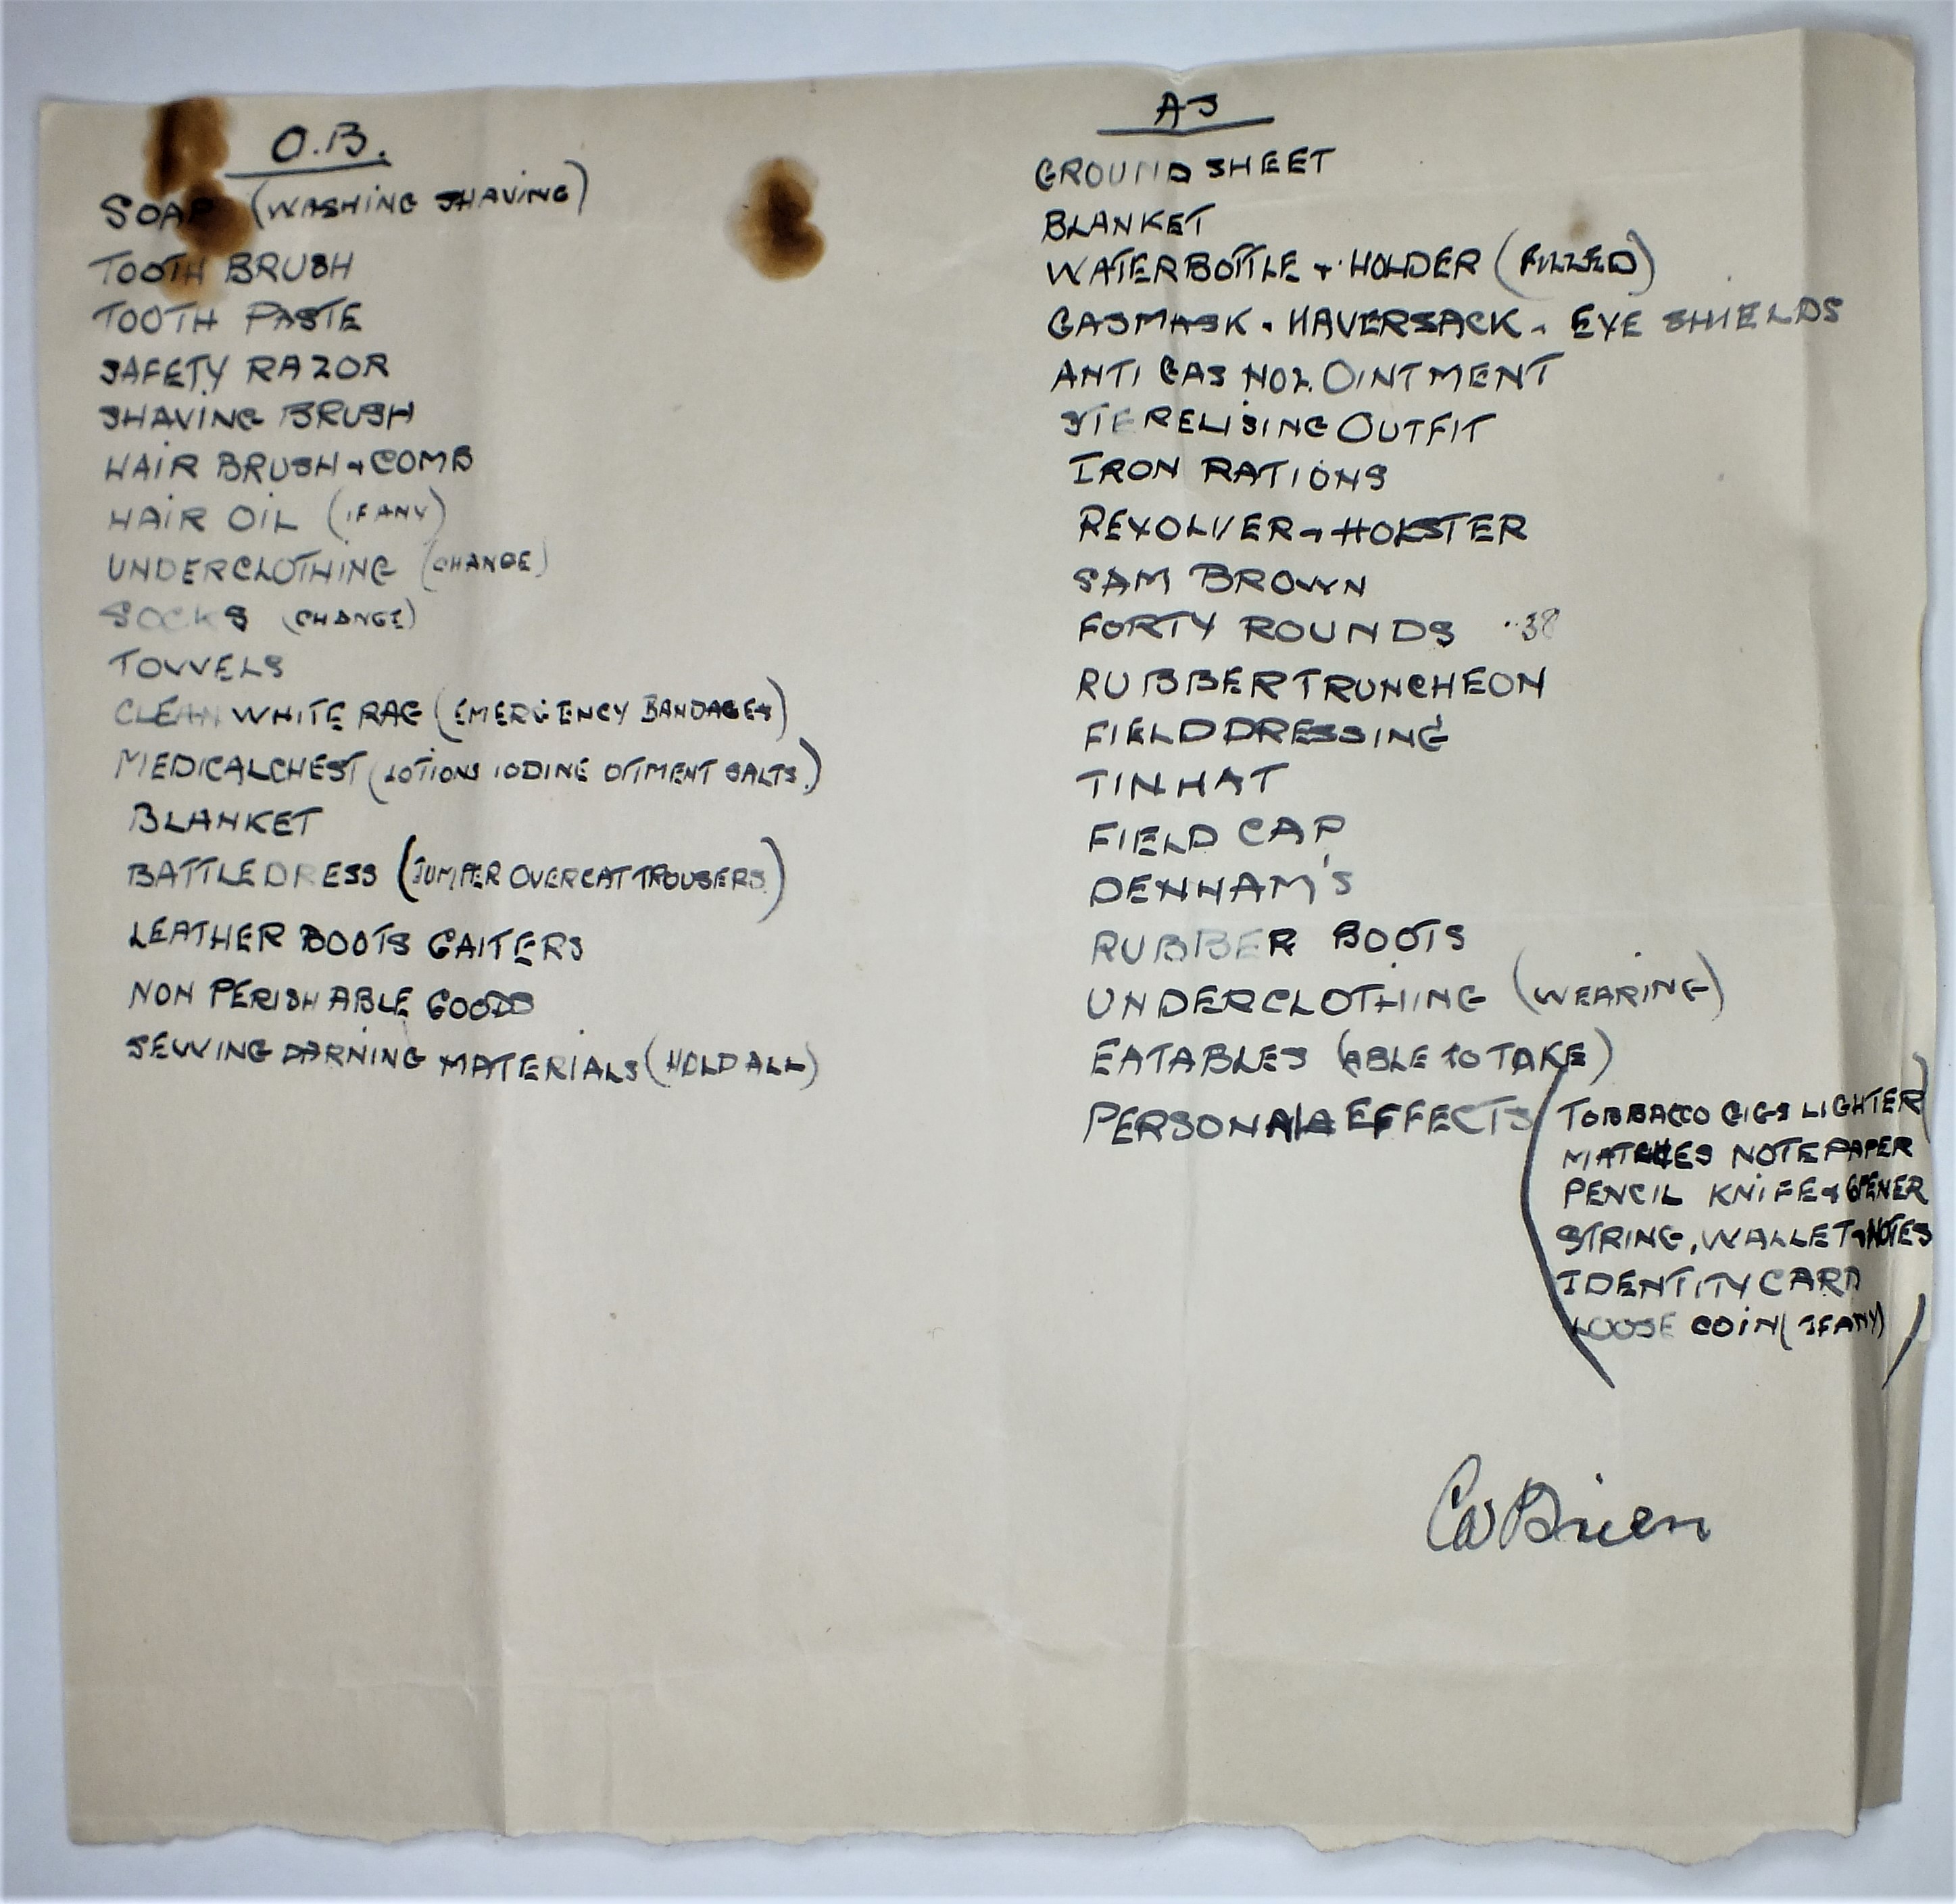 O.B.
SOAP (WASHING SHAVING)
TOOTH BRUSH
TOOTH PASTE
SAFETY RAZOR
SHAVING BRUSH
HAIR BRUSH + COMB
HAIR OIL (IF ANY)
UNDERCLOTHING (CHANGE)
SOCKS (CHANGE)
TOWELS
CLEAN WHITE RAG (EMERGENCY BANDAGES)
MEDICAL CHEST (LOTIONS IODINE OITMENT SALTS.)
BLANKET
BATTLEDRESS (JUMPER OVERCAT TROUSERS)
LEATHER BOOTS GAITERS
NON PERISHABLE GOODS
SEWING DARNING MATERIALS (HOLD ALL)
AS
GROUND SHEET
BLANKET
WATERBOTTLE + HOLDER (FILLED)
GASMASK - HAVERSACK - EYE SHIELDS
ANTI GAS NO2. OINTMENT
STERELISING OUTFIT
IRON RATIONS
REVOLVER + HOLSTER
SAM BROWN
FORTY ROUNDS .38
RUBBER TRUNCHEON
FIELD DRESSING
TIN HAT
FIELD CAP
DENHAM'S
RUBBER BOOTS
UNDERCLOTHING (WEARING)
EATABLES (ABLE TO TAKE)
PERSONAL EFFECTS (TOBBACCO CIGS LIGHTER
MATCHES NOTEPAPER
PENCIL KNIFE + OPENER
STRING, WALLET + NOTES
IDENTITY CARD
LOOSE COIN (IF ANY))